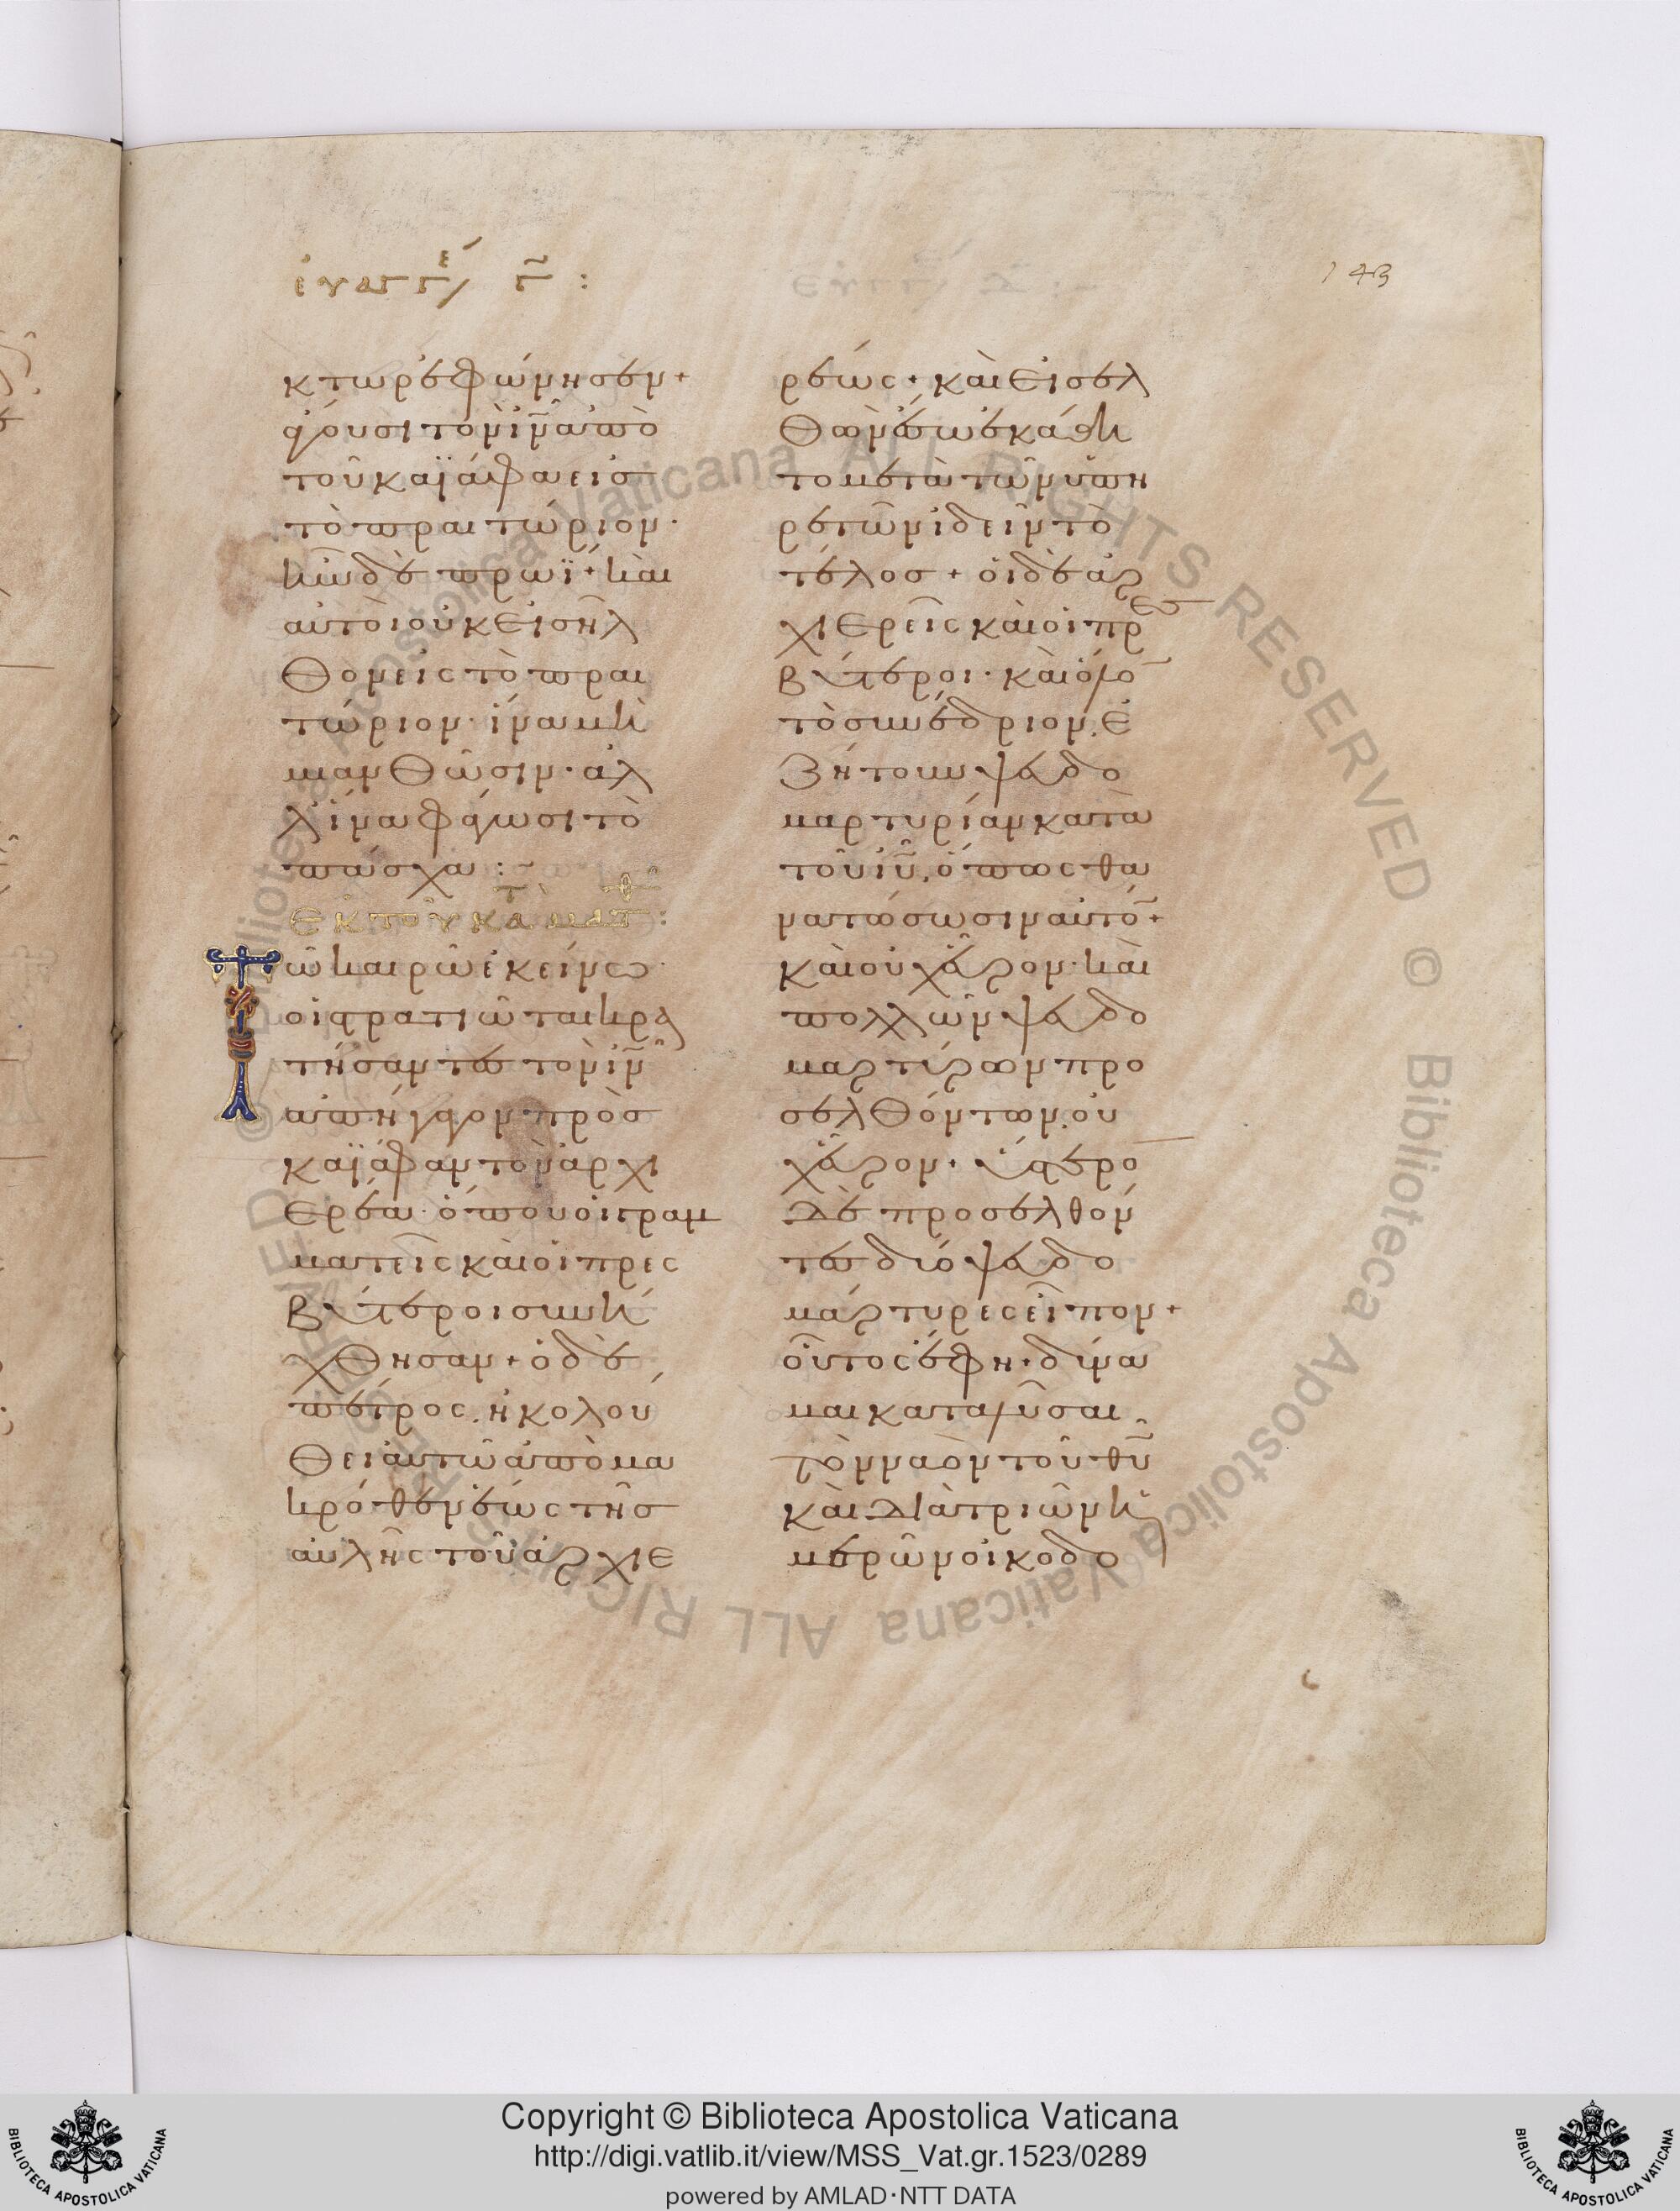 εὐαγγέ/ γ̃ :
143
κτωρ ἐφώνησεν +
ἄγουσι τὸν ἰν̃ ἀπὸ
τοῦ καϊάφα εἰσ
τὸ πραιτώριον ·
ἦν δὲ πρωΐ + καὶ
αὐτοὶ οὐκ εἰσῆλ
θον εἰς τὸ πραι
τώριον · ἵνα μὴ
μιανθῶσιν · ἀλ
λ' ἵνα φάγωσι τὸ
πάσχα : ~
ἐκ τοῦ κατὰ ματθ :
Τῶ καιρῶ ἐκείνω ·
οἱ στρατιῶται κρα
τήσαντες τὸν ἰν̃
ἀπήγαγον πρὸσ
καϊάφαν τὸν ἀρχι
ερέα · ὅπου οἱ γραμ
ματεῖς καὶ οἱ πρεσ
βύτεροι συνή
χθησαν + ὁ δὲ
πέτρος · ἠκολού
θει αὐτῶ ἀπὸ μα
κρόθεν ἕως τῆσ
αὐλῆς τοῦ ἀρχιε
ρέως + καὶ εἰσελ
θὼν ἔσω ἐκάθη
το μετὰ τῶν ὑπη
ρετῶν ἰδεῖν τὸ
τέλος + οἱ δὲ ἀρ
χιερεῖς καὶ οἱ πρεσ
βύτεροι · καὶ ὅλο̄
τὸ συνέδριον · ἐ
ζήτουν ψευδο
μαρτυρίαν κατὰ
τοῦ ἰῦ, ὅπως θα
νατώσωσιν αὐτό̄ +
καὶ οὐχ εὗρον · καὶ
πολλῶν ψευδο
μαρτύρων προ
σελθόντων · οὐ
χ εὗρον + ὕστερο̄
δὲ προσελθόν
τες δύο ψευδο
μάρτυρες εἶπον +
οὗτος ἔφη · δύνα
μαι καταλῦσαι
τὸν ναὸν τοῦ θῦ
καὶ διὰ τριῶν ἡ
μερῶν οἰκοδο
Copyright © Biblioteca Apostolica Vaticana
http://digi.vatlib.it/view/MSS_Vat.gr.1523/0289
powered by AMLAD·NTT DATA
BIBLIOTECA APOSTOLICA VATICANA
BIBLIOTECA APOSTOLICA VATICANA
© Biblioteca Apostolica Vaticana ALL RIGHTS RESERVED © Biblioteca Apostolica Vaticana ALL RIGHTS RESERVED